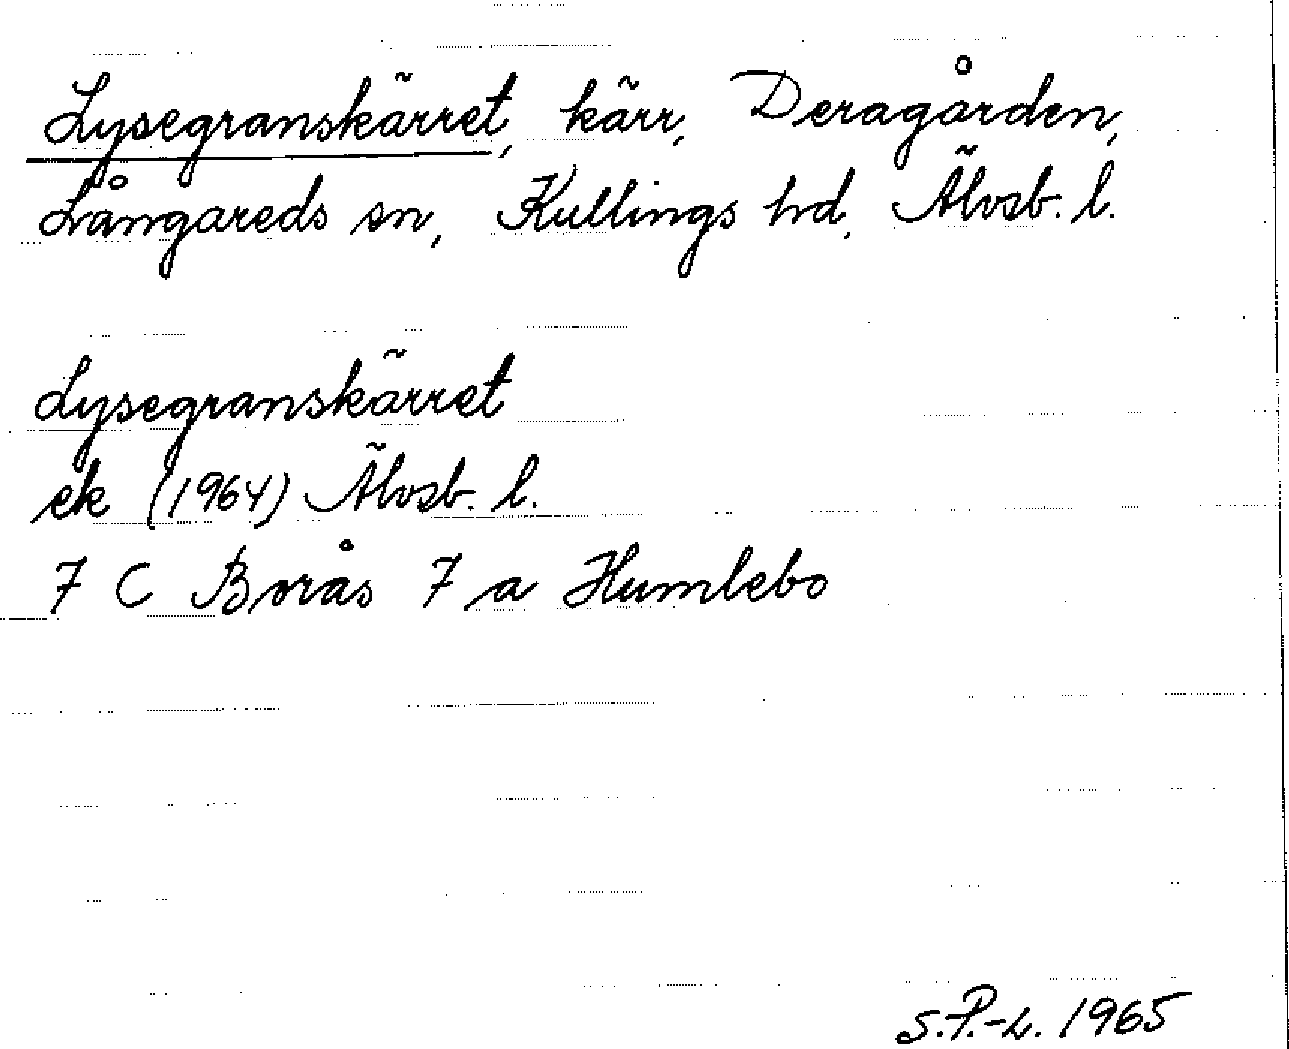 Lysegranskärret, kärr, Deragården,
Långareds sn, Kullings hd, Älvsb. l.
Lysegranskärret
ek (1964) Älvsb. l.
7 C Borås 7 a Humlebo
S.P.-L. 1965